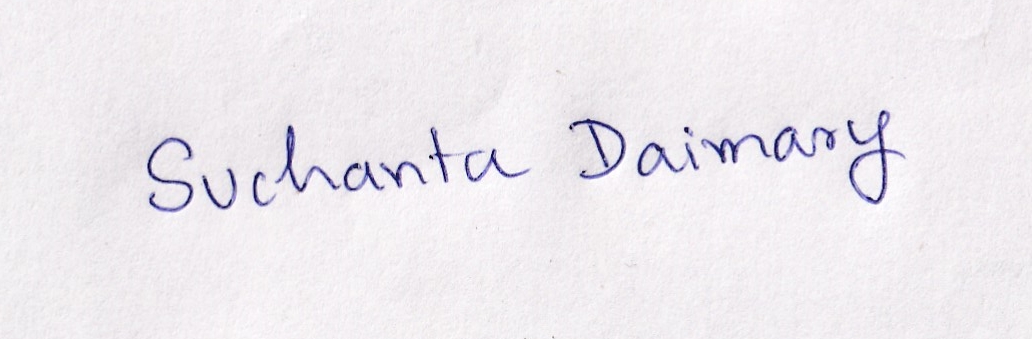 Suchanta Daimary